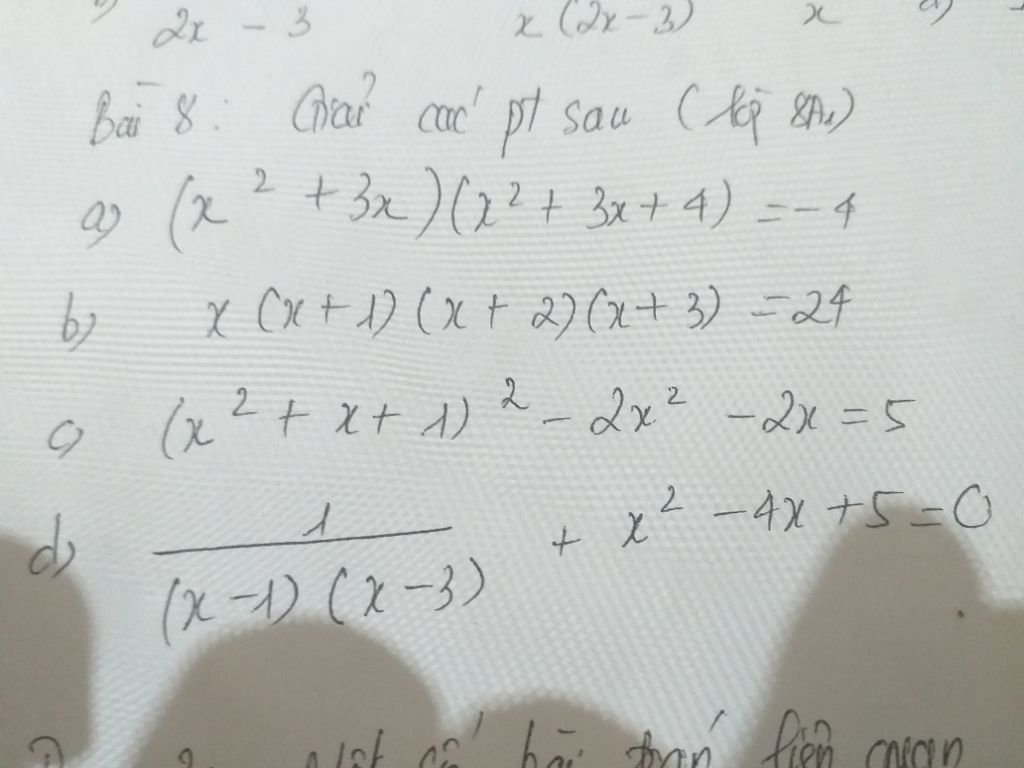 2x - 3 x (2x-3) x
Bài 8: Giải các pt sau (lớp 8A1)
a) (x² + 3x)(x² + 3x + 4) = -4
b) x (x+1)(x+2)(x+3) = 24
c) (x² + x + 1)² - 2x² - 2x = 5
d) 1/((x-1)(x-3)) + x² - 4x + 5 = 0
bài toán liên quan